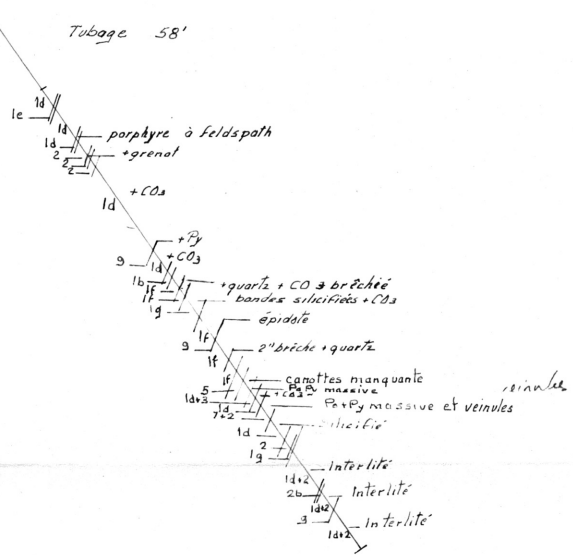 Tubage 58'
1d
1e
1d
porphyre à feldspath
1d
2
+grenat
2
2
+CO3
1d
+Py
+CO3
9
1d
1b
1f
+quartz + CO3 brêchiée
1f
bandes silicifiées +CO3
1g
épidote
1f
9
2" brêche +quartz
1f
1f
carottes manquante
5
Po Py massive
+CO3
1d+3
Po+Py massive et veinules
veinules
1d
7+2
Silicifié
1d
2
1g
Interlité
1d+2
2b
Interlité
1d+2
9
Interlité
1d+2